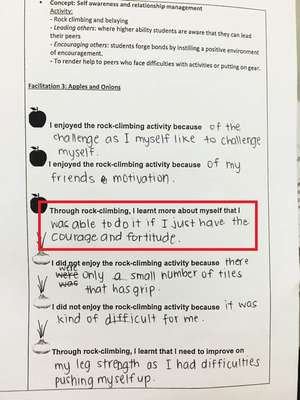 Concept: Self awareness and relationship management
Activity:
- Rock climbing and belaying
- Leading others: where higher ability students are aware that they can lead
their peers
- Encouraging others: students forge bonds by instilling a positive environment
of encouragement.
- To render help to peers who face difficulties with activities or putting on gear.
Facilitation 3: Apples and Onions
I enjoyed the rock-climbing activity because of the
challenge as I myself like to challenge
myself.
I enjoyed the rock-climbing activity because of my
friends & motivation.
Through rock-climbing, I learnt more about myself that I
was able to do it if I just have the
courage and fortitude.
I did not enjoy the rock-climbing activity because there
were
were only a small number of tiles
was that has grip.
I did not enjoy the rock-climbing activity because it was
kind of difficult for me.
Through rock-climbing, I learnt that I need to improve on
my leg strength as I had difficulties
pushing myself up.